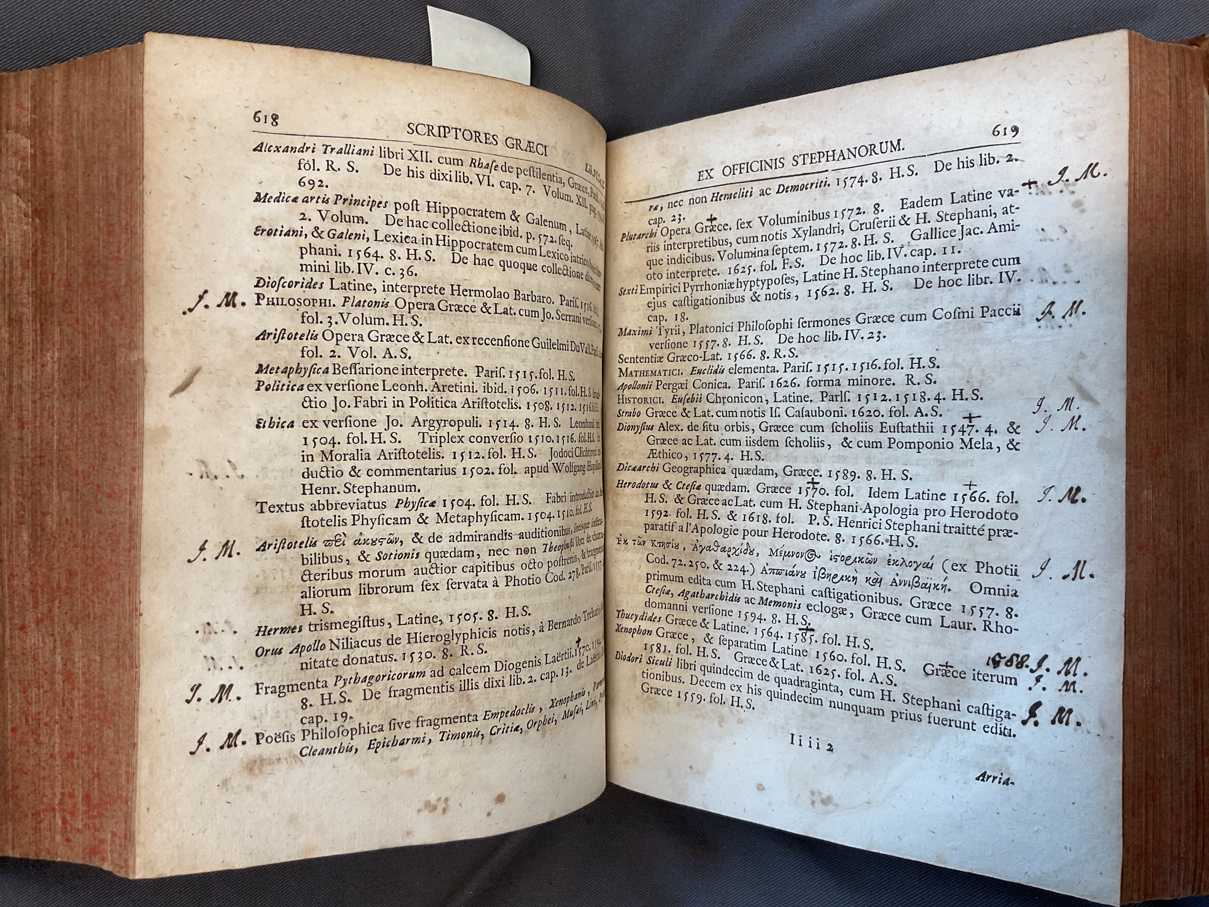 618
SCRIPTORES GRÆCI
Alexandri Tralliani libri XII. cum Rhase de pestilentia, Græce, Paris.
fol. R. S. De his dixi lib. VI. cap. 7. Volum. XII. pag.
692.
Medicæ artis Principes post Hippocratem & Galenum,
2. Volum. De hac collectione ibid. p. 572. seq.
Erotiani, & Galeni, Lexica in Hippocratem cum Lexico
phani. 1564. 8. H. S. De hac quoque collectione
mini lib. IV. c. 36.
Dioscorides Latine, interprete Hermolao Barbaro. Paris.
J. M. PHILOSOPHI. Platonis Opera Græce & Lat. cum Jo. Serrani
fol. 3. Volum. H. S.
Aristotelis Opera Græce & Lat. ex recensione Guilelmi Du Vall.
fol. 2. Vol. A. S.
Metaphysica Bessarione interprete. Paris. 1515. fol. H. S.
Politica ex versione Leonh. Aretini. ibid. 1506. 1511. fol. H. S.
ctio Jo. Fabri in Politica Aristotelis. 1508. 1512.
Ethica ex versione Jo. Argyropuli. 1514. 8. H. S. Leonhardi
1504. fol. H. S. Triplex conversio 1510. 1516. fol. H. S.
in Moralia Aristotelis. 1512. fol. H. S. Jodoci
ductio & commentarius 1502. fol. apud Wolfgang
Henr. Stephanum.
Textus abbreviatus Physicæ 1504. fol. H. S. Fabri
stotelis Physicam & Metaphysicam. 1504. 1510. fol. H. S.
J. M. Aristotelis περὶ ἀκουστῶν, & de admirandis auditionibus,
bilibus, & Sotionis quædam, nec non
cteribus morum auctior capitibus octo postremis, &
aliorum librorum sex servata à Photio Cod. 278.
H. S.
Hermes trismegistus, Latine, 1505. 8. H. S.
Orus Apollo Niliacus de Hieroglyphicis notis, à Bernardo
nitate donatus. 1530. 8. R. S.
J. M. Fragmenta Pythagoricorum ad calcem Diogenis Laërtii. 1570.
8. H. S. De fragmentis illis dixi lib. 2. cap. 13. de
cap. 19.
J. M. Poësis Philosophica sive fragmenta Empedoclis, Xenophanis,
Cleanthis, Epicharmi, Timonis, Critiæ, Orphei, Musæi, Lini,
EX OFFICINIS STEPHANORUM.
619
ræ, nec non Heracliti ac Democriti. 1574. 8. H. S. De his lib. 2.
cap. 23.
Plutarchi Opera Græce. sex Voluminibus 1572. 8. Eadem Latine va- J. M.
riis interpretibus, cum notis Xylandri, Cruserii & H. Stephani, at-
que indicibus. Volumina septem. 1572. 8. H. S. Gallice Jac. Ami-
oto interprete. 1625. fol. F. S. De hoc lib. IV. cap. 11.
Sexti Empirici Pyrrhoniæ hyptyposes, Latine H. Stephano interprete cum
ejus castigationibus & notis, 1562. 8. H. S. De hoc libr. IV.
cap. 18.
Maximi Tyrii, Platonici Philosophi sermones Græce cum Cosmi Paccii J. M.
versione 1557. 8. H. S. De hoc lib. IV. 23.
Sententiæ Græco-Lat. 1566. 8. R. S.
MATHEMATICI. Euclidis elementa. Paris. 1515. 1516. fol. H. S.
Apollonii Pergæi Conica. Paris. 1626. forma minore. R. S.
HISTORICI. Eusebii Chronicon, Latine. Paris. 1512. 1518. 4. H. S.
Strabo Græce & Lat. cum notis Is. Casauboni. 1620. fol. A. S. J. M.
Dionysius Alex. de situ orbis, Græce cum scholiis Eustathii 1547. 4. & J. M.
Græce ac Lat. cum iisdem scholiis, & cum Pomponio Mela, &
Æthico, 1577. 4. H. S.
Dicæarchi Geographica quædam, Græce. 1589. 8. H. S.
Herodotus & Ctesiæ quædam. Græce 1570. fol. Idem Latine 1566. fol. J. M.
H. S. & Græce ac Lat. cum H. Stephani Apologia pro Herodoto
1592. fol. H. S. & 1618. fol. P. S. Henrici Stephani traitté præ-
paratif a l'Apologie pour Herodote. 8. 1566. H. S.
Ἐκ τῶν Κτησίου, Ἀγαθαρχίδου, Μέμνονος ἱστορικῶν ἐκλογαὶ (ex Photii
Cod. 72. 250. & 224.) Ἀππιάνου ἰβηρικὴ καὶ Ἀννιβαϊκή. Omnia J. M.
primum edita cum H. Stephani castigationibus. Græce 1557. 8.
Ctesiæ, Agatharchidis ac Memonis eclogæ, Græce cum Laur. Rho-
domanni versione 1594. 8. H. S.
Thucydides Græce & Latine. 1564. 1585. fol. H. S.
Xenophon Græce, & separatim Latine 1560. fol. H. S. Græce iterum 1588. J. M.
1581. fol. H. S. Græce & Lat. 1625. fol. A. S. J. M.
Diodori Siculi libri quindecim de quadraginta, cum H. Stephani castiga- J. M.
tionibus. Decem ex his quindecim nunquam prius fuerunt editi.
Græce 1559. fol. H. S.
Iiii 2
Arria-